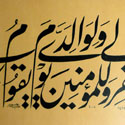 لی وَلِوالِدَیَّ
وَلِلمُؤمِنینَ یَومَ یَقومُ